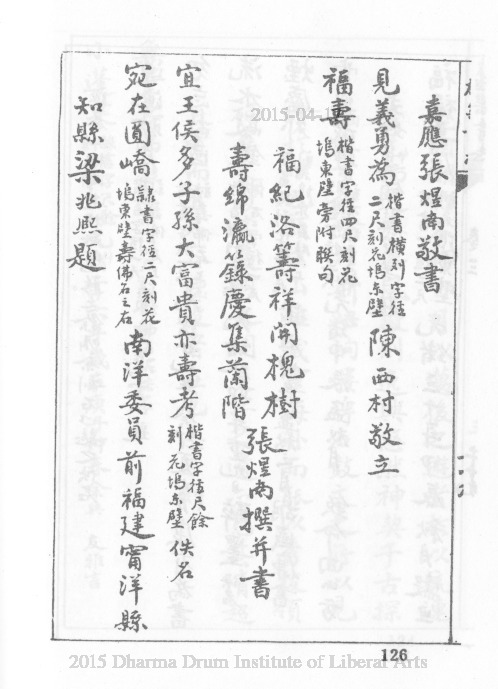 嘉應張煜南敬書
見義勇為 楷書橫列字徑二尺刻花塢東壁 陳西村敬立
福壽 楷書字徑四尺刻花塢東壁旁附聯句
福紀洛籌祥開槐樹
壽綿瀛籙慶集蘭階 張煜南撰并書
宜王侯多子孫大富貴亦壽考 楷書字徑尺餘刻花塢東壁 佚名
宛在圓嶠 隸書字徑二尺刻花塢東壁壽佛名之右 南洋委員前福建甯洋縣
知縣梁兆熙題
126
2015-04-1
2015 Dharma Drum Institute of Liberal Arts